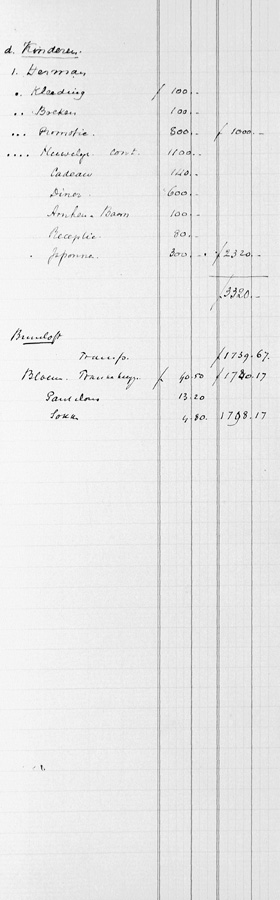 d. Kinderen.
1. Herman
. Kleeding ƒ 100.-
.. Boeken 100.-
... Promotie. 800.- ƒ 1000.-
.... Huwelijk cont. 1100.-
Cadeau 140.-
Diner 600.-
Arnhem-Baarn 100.-
Receptie 80.-
Japonnen. 300.- ƒ 2320.-
ƒ 3320.-
Bruiloft
Transp. ƒ 1739.67.
Bloem. ƒ 40.50 ƒ 1780.17
13.20
4.80. 1798.17